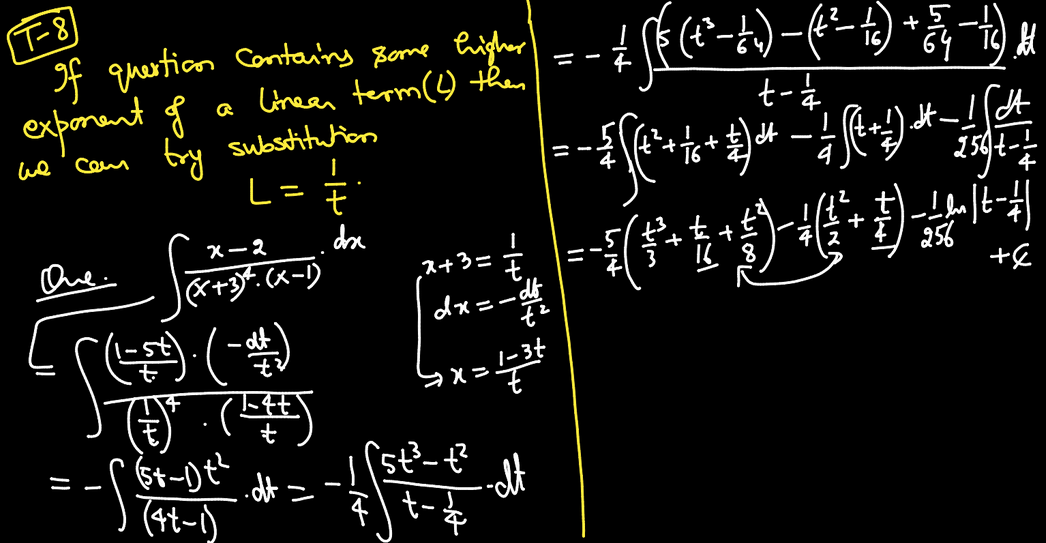 T-8
If question contains some higher
exponent of a linear term(L) then
we can try substitution
L = 1/t.
Que. ∫ (x-2)/((x+3)^4.(x-1)) . dx
x+3 = 1/t
dx = -dt/t^2
→ x = (1-3t)/t
= ∫ ((1-5t)/t).(-dt/t^2) / ((1/t)^4 . ((1-4t)/t))
= -∫ (5t-1)t^2/(4t-1) .dt = -1/4 ∫ (5t^3-t^2)/(t-1/4) .dt
= -1/4 ∫ (5(t^3-1/64)-(t^2-1/16)+5/64-1/16)/(t-1/4) .dt
= -5/4 ∫(t^2+1/16+t/4) dt - 1/4 ∫(t+1/4).dt - 1/256 ∫ dt/(t-1/4)
= -5/4 (t^3/3+t/16+t^2/8) - 1/4 (t^2/2+t/4) - 1/256 ln|t-1/4|
+c